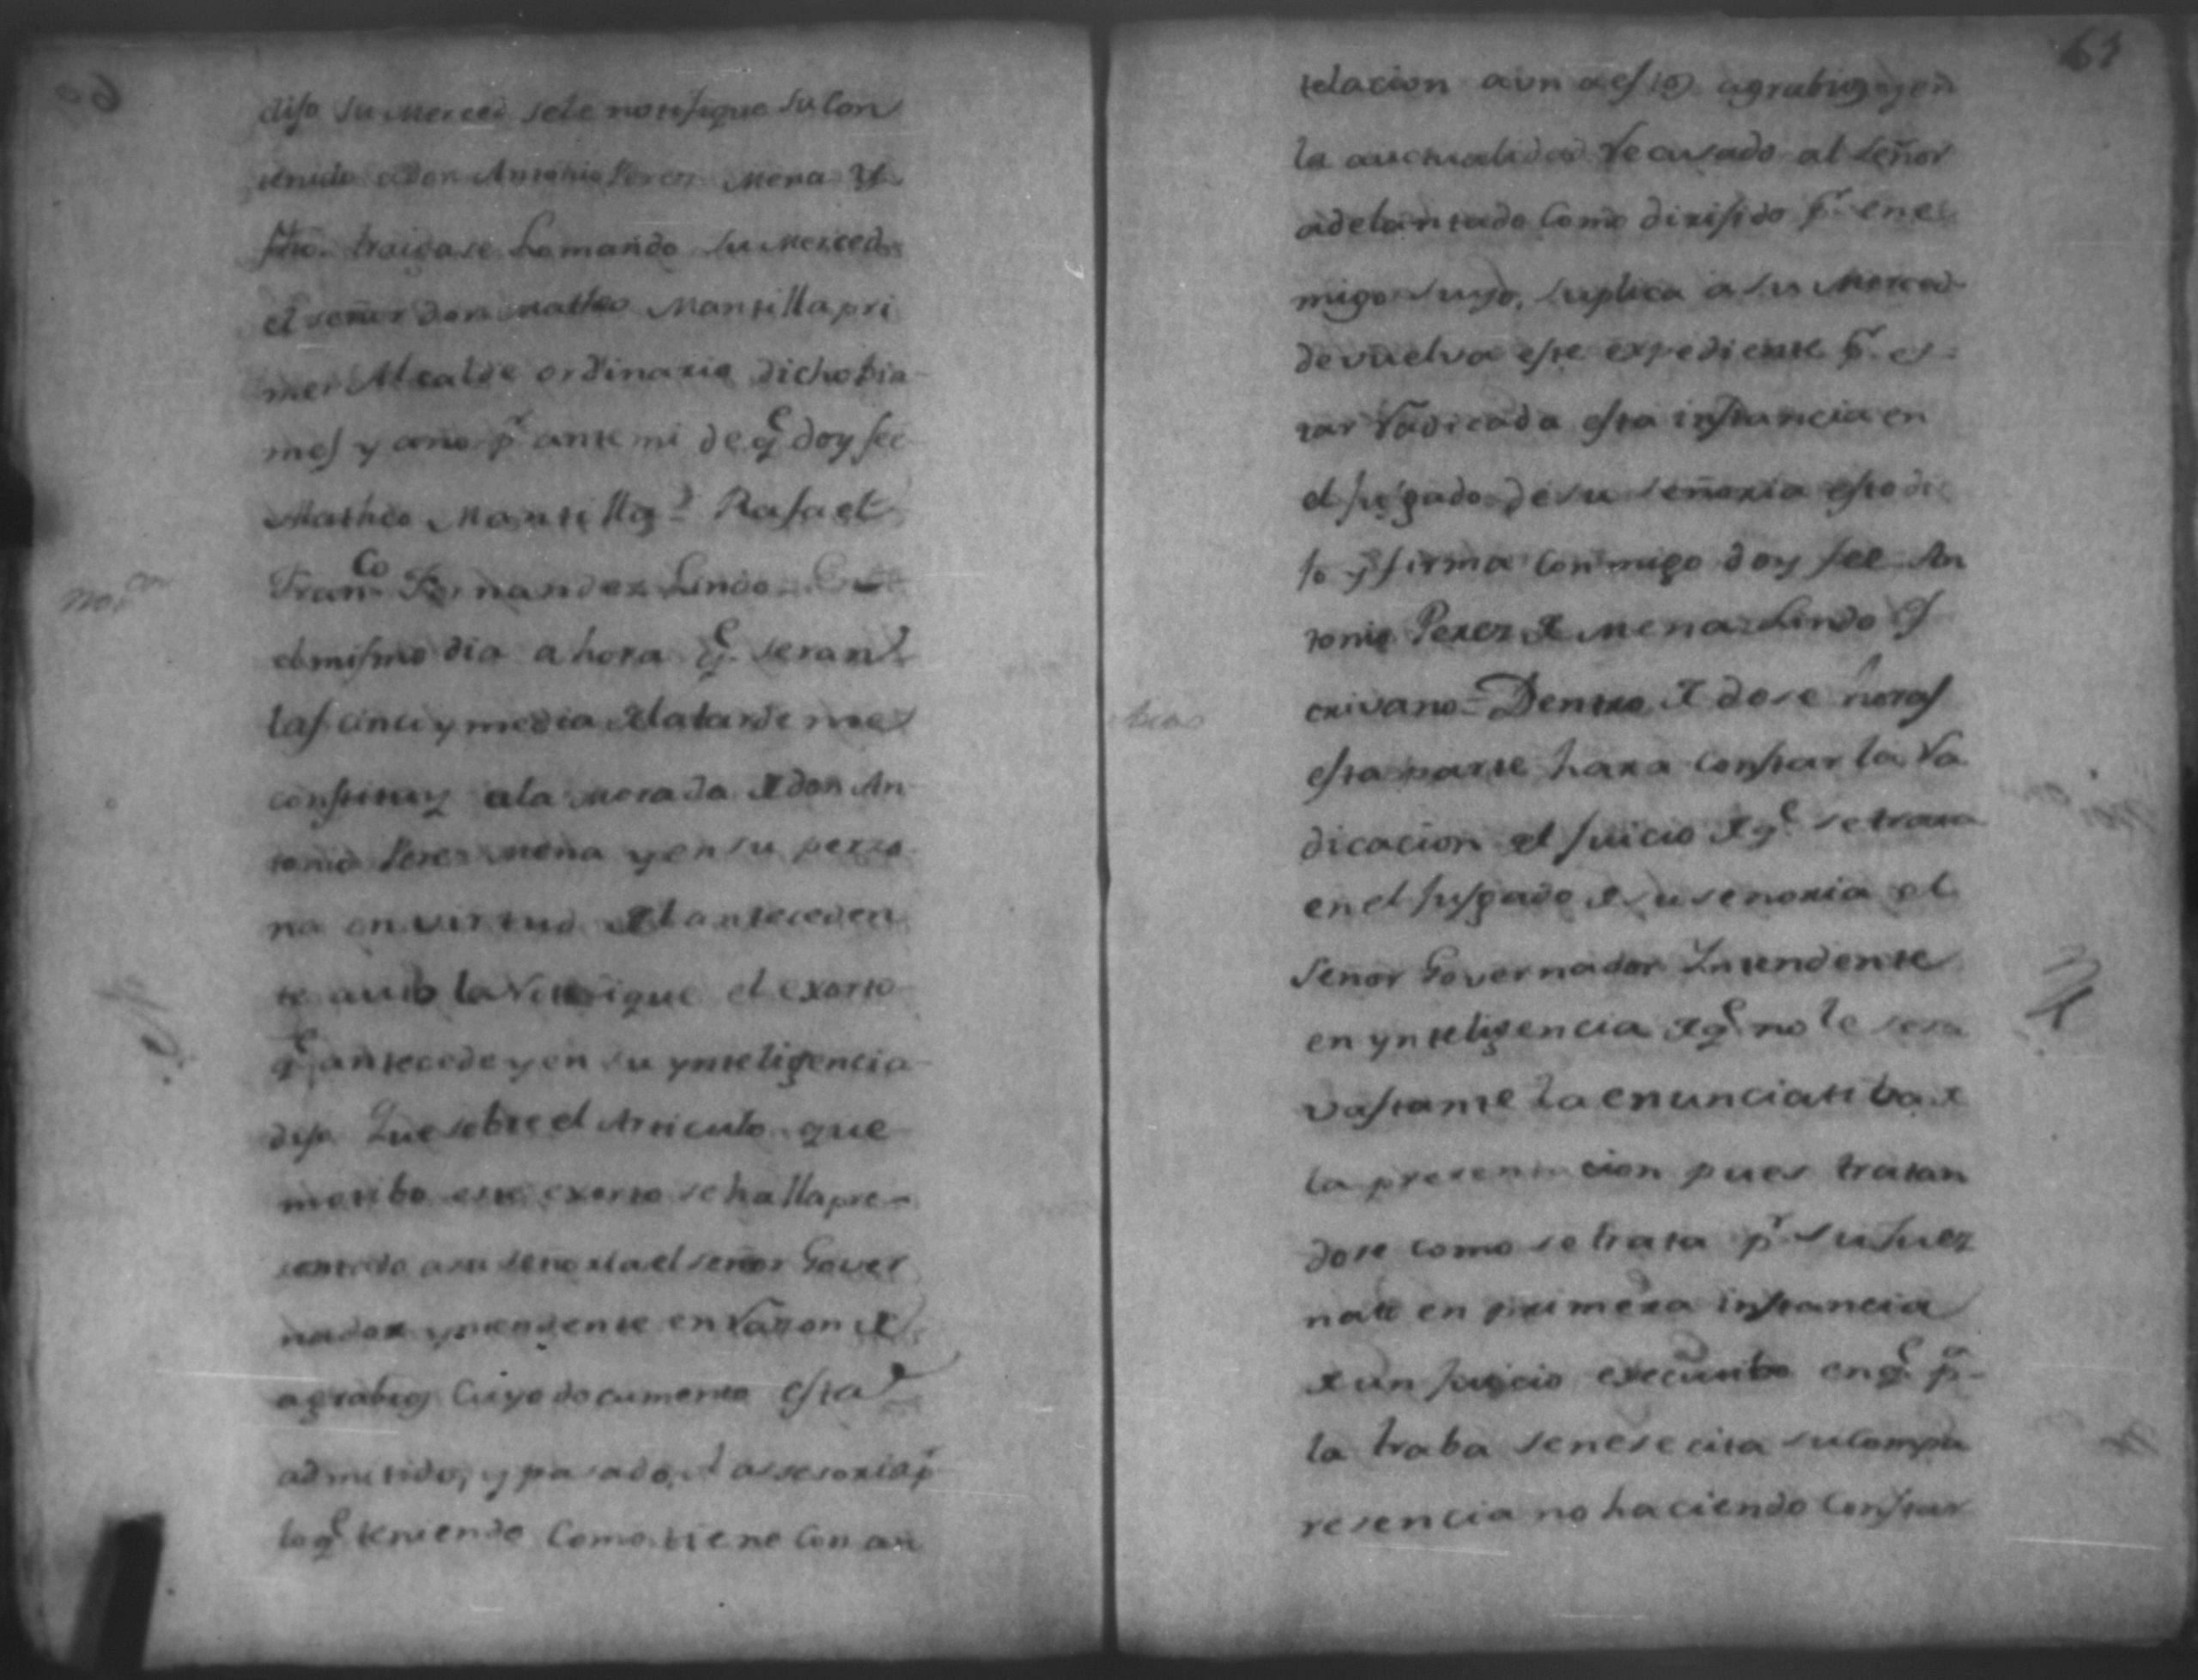 diso su merced sele notifique su con
tenido a don Antonio Perez Mena y
fho traigase Lo mando su merced
el señor don Matheo Mantilla pri
mer Alcalde ordinario dicho dia
mes y año pr ante mi de qe doy fee
Matheo Mantilla = Rafael
Franco Fernandez Lindo
Noton
el mismo dia a hora qe seran
las cinco y media de la tarde me
constituy a la morada de don An
tonio Perez Mena y en su perzo
na en virtud del anteceden
te auto la notisique el exorto
qe antecede y en su ynteligencia
diso Que sobre el Articulo que
motibo este exorto se halla pre-
sentado a su señoria el señor Gover
nador yntendente en razon de
agrabios Cuyo documento esta
admitido, y pasado al assesoria pr
lo qe teniendo Como tiene Con an
61
telacion aun a estos agrabios y en
la auctualidad recusado al señor
adelantado Como dirisido pr ene
migo suyo, suplica a su Merced
devuelva este expediente pr es-
tar radicada esta instancia en
el jusgado de su señoria esto di
so y firma Conmigo doy fee An
tonio Perez de Mena Lindo Es
crivano = Dentro de dose horas
Auto
esta parte hara Constar la ra
dicacion del juicio de qe se trata
en el jusgado de su senoria el
Señor Governador Intendente
en ynteligencia de qe no le sera
vastante la enunciatiba de
la presentacion pues tratan
dose como se trata pr su Juez
nato en primera instancia
de un juicio executibo en qe pa
la traba se nesecita su Compa
resencia no haciendo Constar